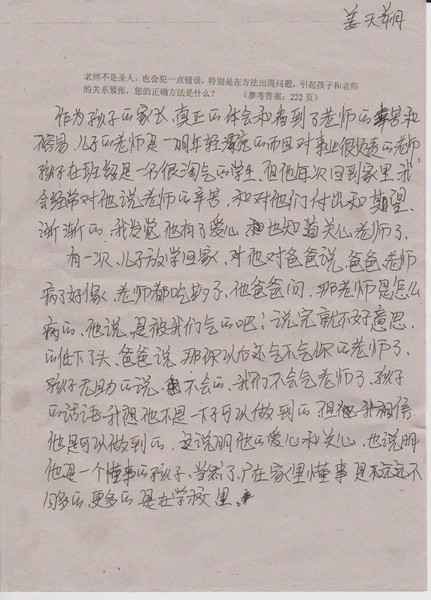 姜天翔
老师不是圣人，也会犯一点错误，特别是在方法出现问题，引起孩子和老师
的关系紧张，您的正确方法是什么？（参考答案：222页）
作为孩子的家长，真正的体会和看到了老师的辛苦和
不容易，儿子的老师是一明年轻漂亮的而且对事业很负责的老师
孩子在班级是一名很淘气的学生，但他每次回到家里，我
会经常对他说老师的辛苦，和对他们付出和期望，
渐渐的，我发觉他有了爱心，也知道关心老师了。
有一次，儿子放学回家，对他对爸爸说，爸爸，老师
病了好像，老师都吃药了，他爸爸问，那老师是怎么
病的，他说，是被我们气的吧！说完就不好意思
的低下了头，爸爸说，那你以后还气不气你的老师了，
孩子无助的说，不会的，我们不会气老师了，孩子
的话语，我想他不是一下子可以做到的，但我相信
他是可以做到的，这说明他的爱心和关心，也说明
他是一个懂事的孩子，当然了，在家里懂事是远远不
的，更多的是在学校里。